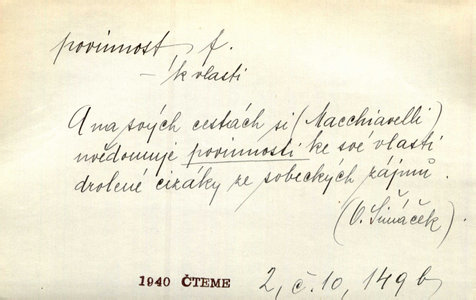 povinnost, f.
– k vlasti
A na svých cestách si (Macchiavelli)
uvědomuje povinnosti ke své vlasti
drolené cizáky ze sobeckých zájmů.
(O. Šimáček).
1940 ČTEME 2, č. 10, 149 b